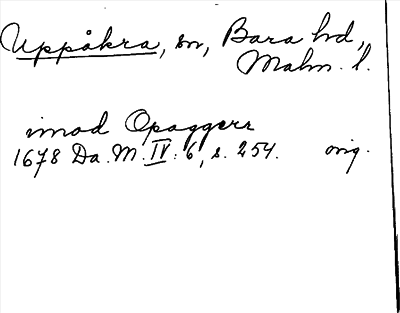 Uppåkra, sn, Bara hd,
Malm. l.
imod Opaggerr
1678 Da. M. IV: 6, s. 254. orig.